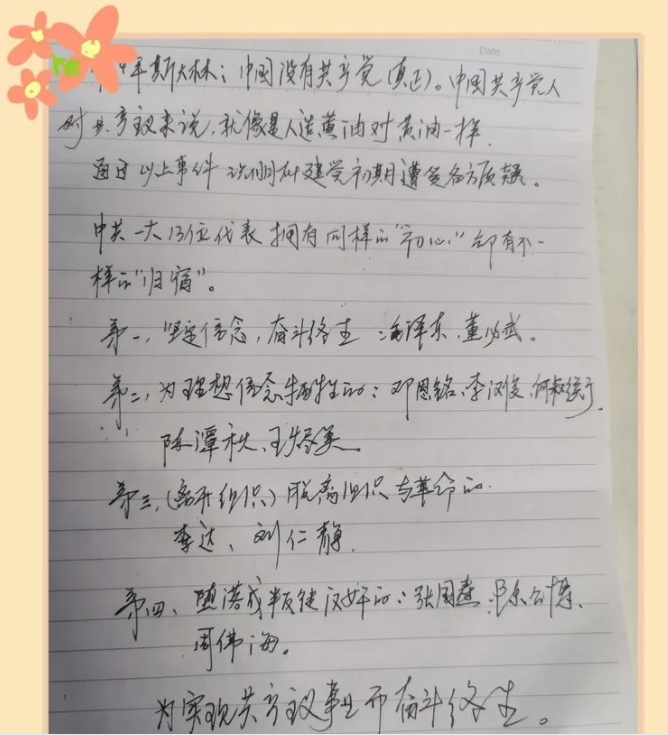 Date
4年斯大林：中国没有共产党（真正）。中国共产党人
对共产主义来说，就像是人造黄油对黄油一样，
通过以上事件 说明在建党初期遭受各方质疑。
中共一大13位代表拥有同样的“初心”却有不一
样的“归宿”。
第一，坚定信念，奋斗终生：毛泽东、董必武。
第二，为理想信念牺牲的：邓恩铭、李汉俊、何叔衡、
陈潭秋、王烬美。
第三，（离开组织）脱离组织与革命的
李达、刘仁静。
第四、堕落成叛徒汉奸的：张国焘、陈公博、
周佛海。
为实现共产主义事业而奋斗终生。